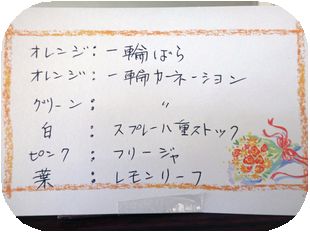 オレンジ：一輪ばら
オレンジ：一輪カーネーション
グリーン：〃
白：スプレー八重ストック
ピンク：フリージャ
葉：レモンリーフ